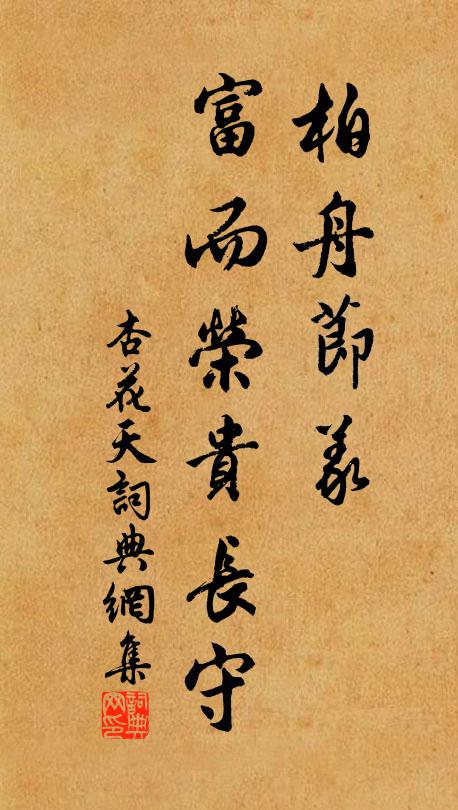 柏舟節義
富而榮貴長守
杏花天詞典網集
詞典網印